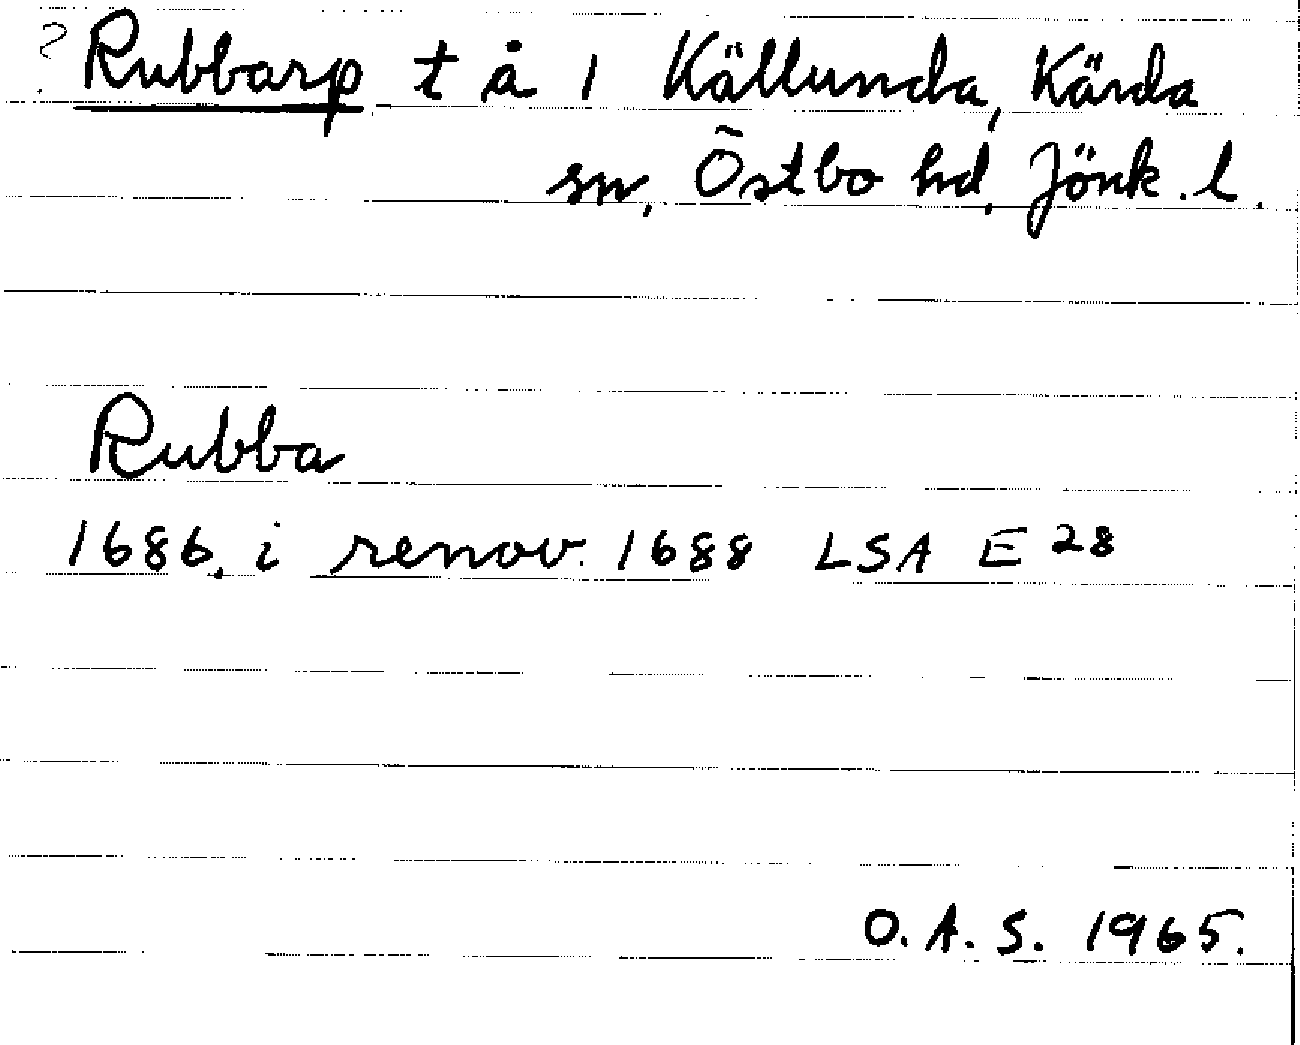 ? Rubbarp t å 1 Källunda, Kärda
sn, Östbo hd, Jönk. l.
Rubba
1686, i renov. 1688 LSA E 28
O. A. S. 1965.